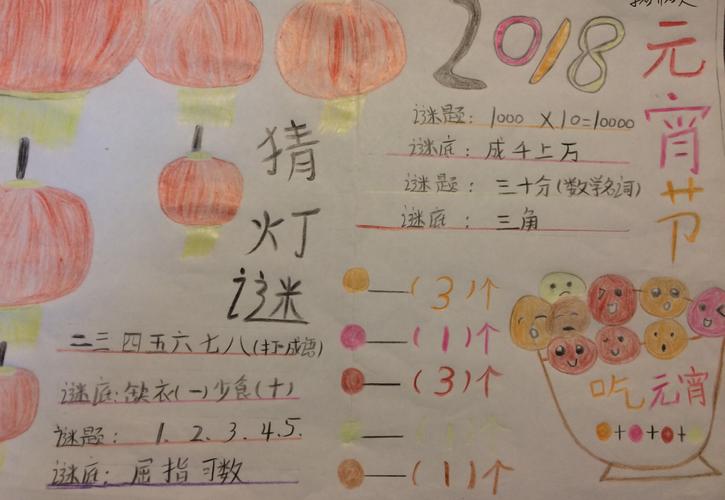 2018
元宵节
猜灯谜
谜题: 1000 X 10=10000
谜底: 成千上万
谜题: 三十分(数学名词)
谜底: 三角
二三四五六七八(打一成语)
谜底:缺衣(一)少食(十)
谜题: 1. 2. 3. 4.5.
谜底: 屈指可数
—(3)个
—(1)个
—(3)个
—(1)个
—(1)个
吃元宵
+ + +